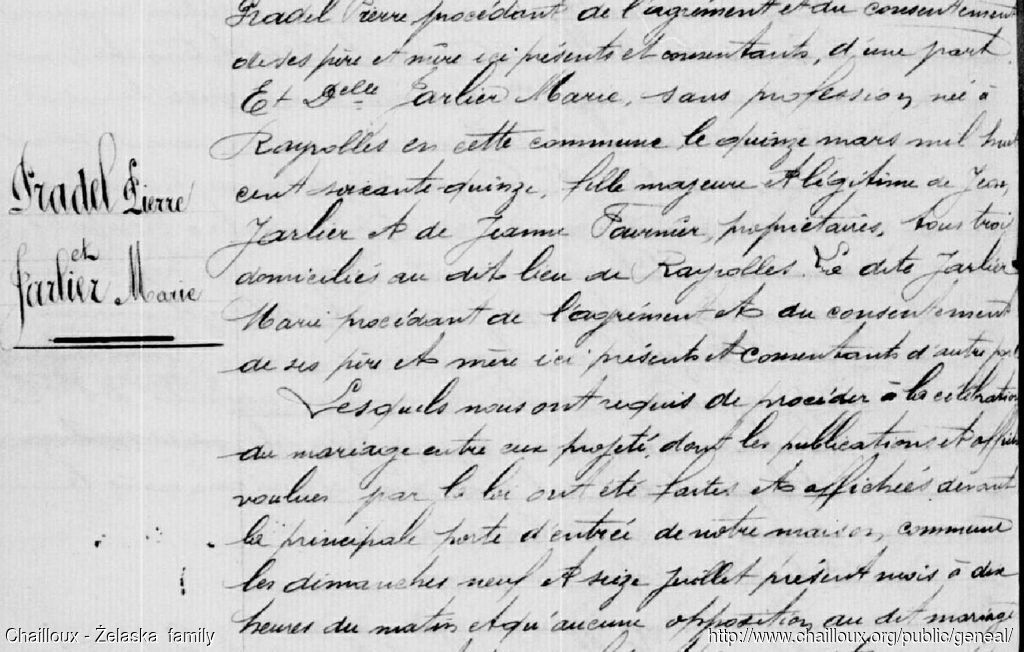 Pradel Pierre procédant de l'agrément et du consentement
de ses père et mère ici présents et consentants, d'une part.
Et Delle Jarlier Marie, sans profession, née à
Rayrolles en cette commune le quinze mars mil huit
cent soixante-quinze, fille majeure et légitime de Jean
Jarlier et de Jeanne Tournier, propriétaires, tous trois
domiciliés au dit lieu de Rayrolles. La dite Jarlier
Marie procédant de l'agrément et du consentement
de ses père et mère ici présents et consentants d'autre part
Lesquels nous ont requis de procéder à la célébration
du mariage entre eux projeté, dont les publications et affiches
voulues par la loi ont été faites et affichées devant
la principale porte d'entrée de notre maison commune
les dimanches neuf et seize juillet présent mois à dix
heures du matin et qu'aucune opposition au dit mariage
Pradel Pierre
et
Jarlier Marie
Chailloux - Želaska family
http://www.chailloux.org/public/geneal/